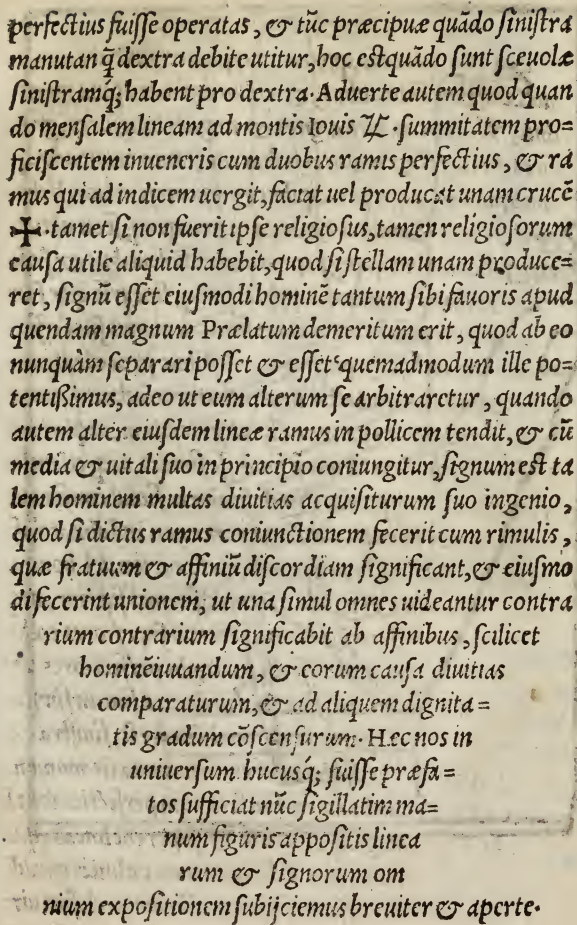 perfectius fuiſſe operatas, & tūc præcipuæ quādo ſiniſtra
manutan q̄ dextra debite utitur, hoc eſt quādo ſunt ſceuolæ
ſiniſtramq́; habent pro dextra. Aduerte autem quod quan
do menſalem lineam ad montis Iouis ♃ . ſummitatem pro=
ficiſcentem inueneris cum duobus ramis perfectius, & ra
mus qui ad indicem uergit, faciat uel producat unam crucē
✚ . tamet ſi non fuerit ipſe religioſus, tamen religioſorum
cauſa utile aliquid habebit, quod ſi ſtellam unam produce=
ret, ſignū eſſet eiuſmodi hominē tantum ſibi fauoris apud
quendam magnum Prælatum demeritum erit, quod ab eo
nunquàm ſeparari poſſet & eſſet quemadmodum ille po=
tentißimus, adeo ut eum alterum ſe arbitraretur, quando
autem alter eiuſdem lineæ ramus in pollicem tendit, & cū
media & uitali ſuo in principio coniungitur, ſignum eſt ta
lem hominem multas diuitias acquiſiturum ſuo ingenio,
quod ſi dictus ramus coniunctionem fecerit cum rimulis,
quæ fratuum & affiniū diſcordiam ſignificant, & eiuſmo
di fecerint unionem, ut una ſimul omnes uideantur contra
rium contrarium ſignificabit ab affinibus, ſcilicet
hominēiuuandum, & eorum cauſa diuitias
comparaturum, & ad aliquem dignita=
tis gradum cōſcenſurum. Hæc nos in
uniuerſum hucusq́; fuiſſe præfa=
tos ſufficiat nūc ſigillatim ma=
num figuris appoſitis linea
rum & ſignorum om
nium expoſitionem ſubijciemus breuiter & aperte.